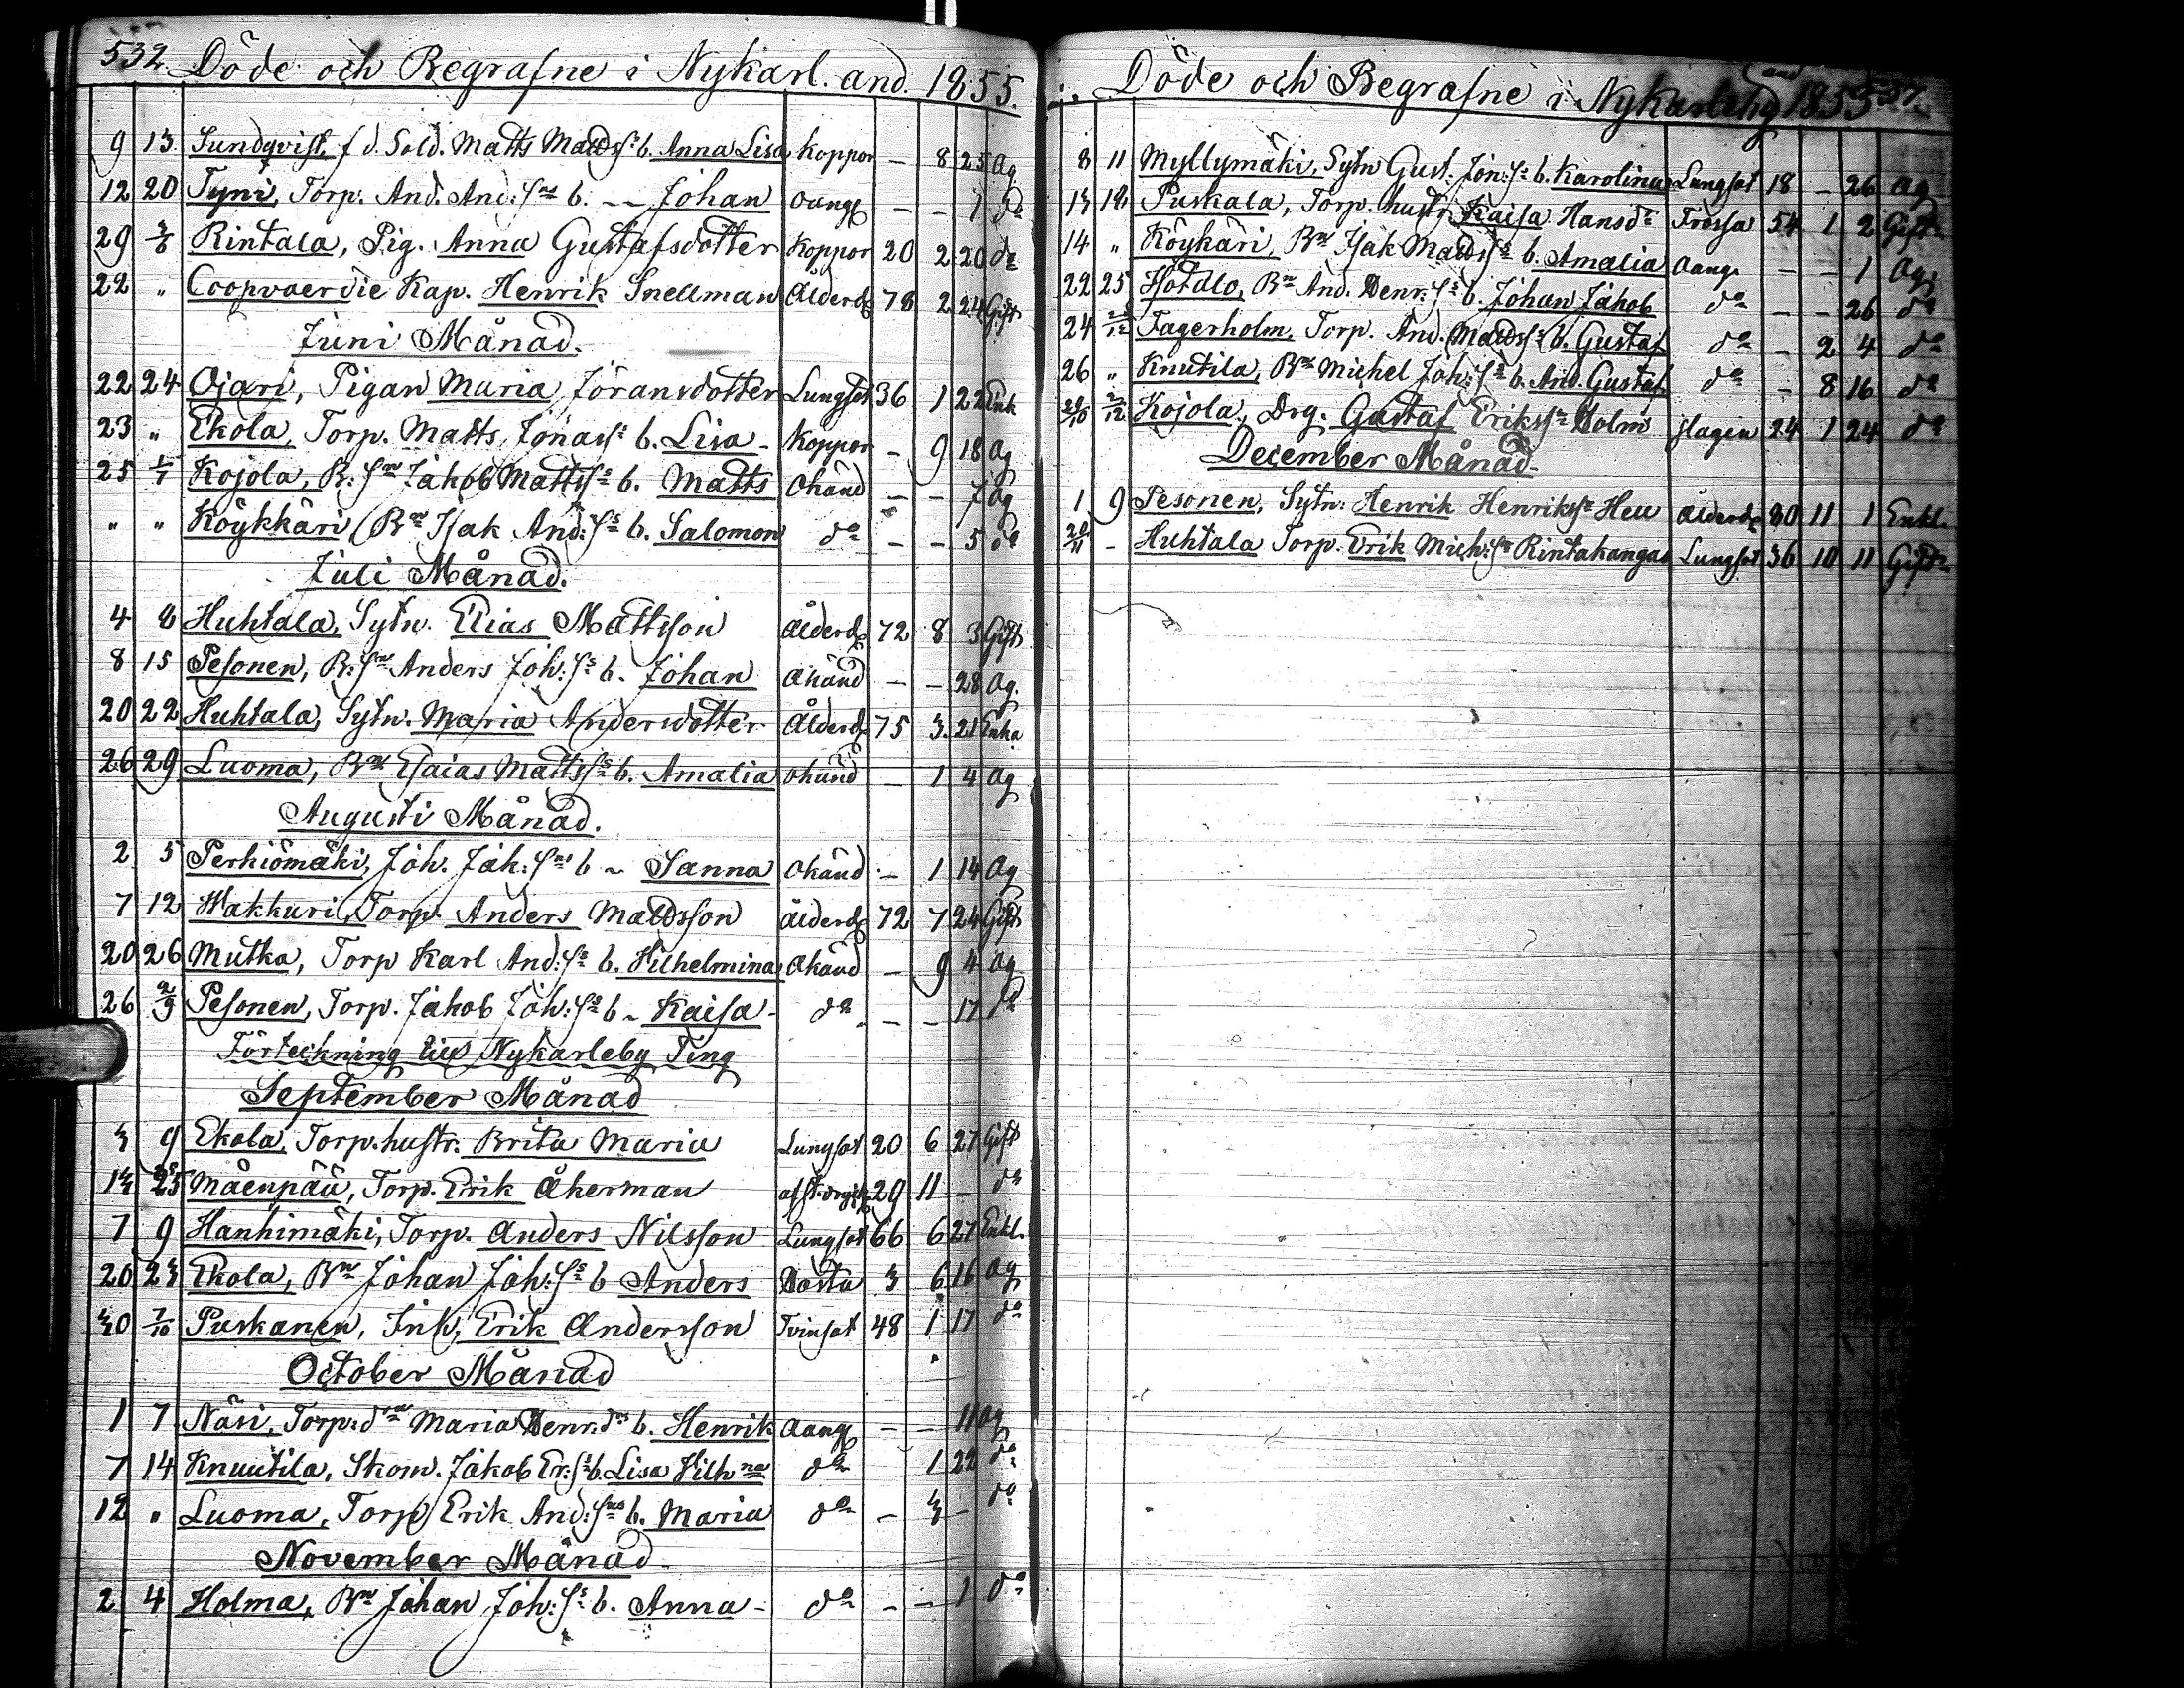 532. Döde och Begrafne i Nykarl. and. 1855.
9 13 Sundqvist, f d. Sold. Matts Matdss: b. Anna Lisa Koppor — 8 25 Og
12 20 Tyni, Torp. And. And: sns b. — Johan Oang — — 1 do
29 3/6 Rintala, Pig. Anna Gustafsdotter Koppor 20 2 20 do
22 " Coopvaerdie Kap. Henrik Snellman Ålderd 78 2 24 Gift
Juni Månad.
22 24 Ojari, Pigan Maria Jöransdotter Lungsot 36 1 22 Enk
23 " Ekola, Torp. Matts Jonass: b. Lisa - Koppor — 9 18 Og
25 1/7 Kojola, B: sn Jakob Mattss: b. Matts Okänd — — 7 Og
" " Köykkäri Bn Isak And: ss b. Salomon do — — 5 do
Juli Månad.
4 8 Huhtala, Sytn. Elias Mattsson Ålderd 72 8 3 Gift
8 15 Pesonen, B: sn Anders Joh: ss b. Johan Okänd — — 28 Og.
20 22 Huhtala, Sytn. Maria Andersdotter Ålderd 75 3 21 Enka
26 29 Luoma, Bn Esaias Mattss b. Amalia Okänd — 1 4 Og
Augusti Månad.
2 5 Perkiömäki, Joh. Jak: sns b ~ Sanna Okänd — 1 14 Og
7 12 Wakkuri, Torp. Anders Matdsson Ålderd 72 7 24 Gift
20 26 Mutka, Torp Karl And: ss b. Wilhelmina Okänd — 9 4 Og
26 2/9 Pesonen, Torp. Jakob Joh: ss b ~ Kaisa - do — — 17 do
Förteckning till Nykarleby Ting
September Månad
3 9 Ekola, Torp. hustr. Brita Maria Lungsot 20 6 27 Gift
13 25 Mäenpää, Torp. Erik Åkerman 29 11 — do
7 9 Hanhimäki, Torp. Anders Nilsson Lungsot 66 6 27 Enkl.
20 23 Ekola, Bn Johan Joh: ss b Anders Hosta 3 6 16 Og
30 7/10 Puskanen, Inh. Erik Andersson Tvinsot 48 1 17 do
October Månad
1 7 Näsi, Torp: dr Maria Henr: ds b. Henrik Oang — — 11 Og
7 14 Knuutila, Skom. Jakob Er: ss b. Lisa Wilhna do 1 22 do
12 " Luoma, Torp Erik And: sns b. Maria do — 3 — do
November Månad
2 4 Holma, Bn Johan Joh: ss b. Anna - do — — 1 do
Döde och Begrafne i Nykarleby and 1855
8 11 Myllymäki, Sytn Gust. Jon: ss b. Karolina Lungsot 18 — 26 Og
13 18 Puskala, Torp. hustr Kaisa Hansdr Frossa 54 1 2 Gift
14 " Köykäri, Bn Isak Matdss b. Amalia Oang — — 1 Og
22 25 Hotalo, Bn And. Henr: ss b. Johan Jakob do — — 26 do
24 2/12 Fagerholm, Torp. And. Matdss b. Gustaf do — 2 4 do
26 " Knutila, Bn Michel Joh: ss b. And. Gustaf do — 8 16 do
28/10 2/12 Kojola, Drg. Gustaf Erikssn Holm slagen 24 1 24 do
December Månad
1 9 Pesonen, Sytn: Henrik Henrikssn Heu Ålderd 80 11 1 Enkl.
20/11 - Huhtala Torp. Erik Mich: sn Rintakangas Lungsot 36 10 11 Gift